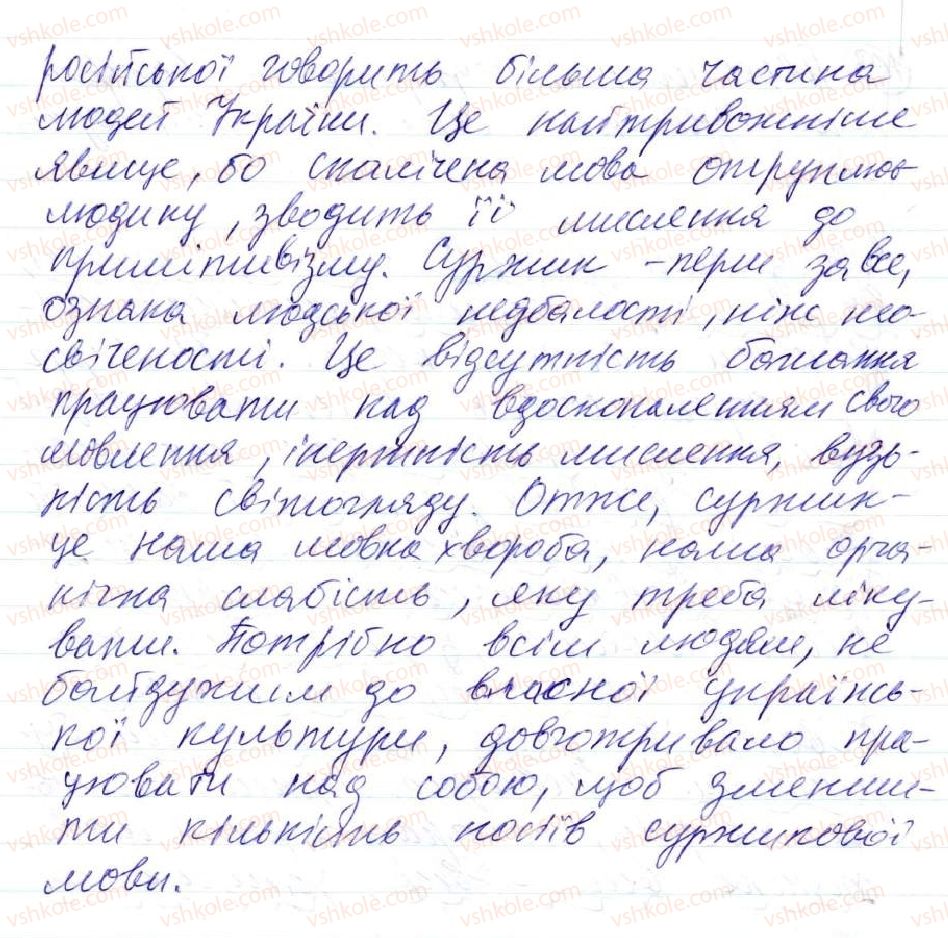 російської говорить більша частина
людей України. Це найтривожніше
явище, бо скалічена мова отруює
людину, зводить її мислення до
примітивізму. Суржик - перш за все,
ознака людської недбалості, ніж нео-
свіченості. Це відсутність бажання
працювати над вдосконаленням свого
мовлення, інертність мислення, вузь-
кість світогляду. Отже, суржик -
це наша мовна хвороба, наша орга-
нічна слабість, яку треба ліку-
вати. Потрібно всім людям, не
байдужим до власної українсь-
кої культури, довготривало пра-
цювати над собою, щоб зменши-
ти кількість носіїв суржикової
мови.